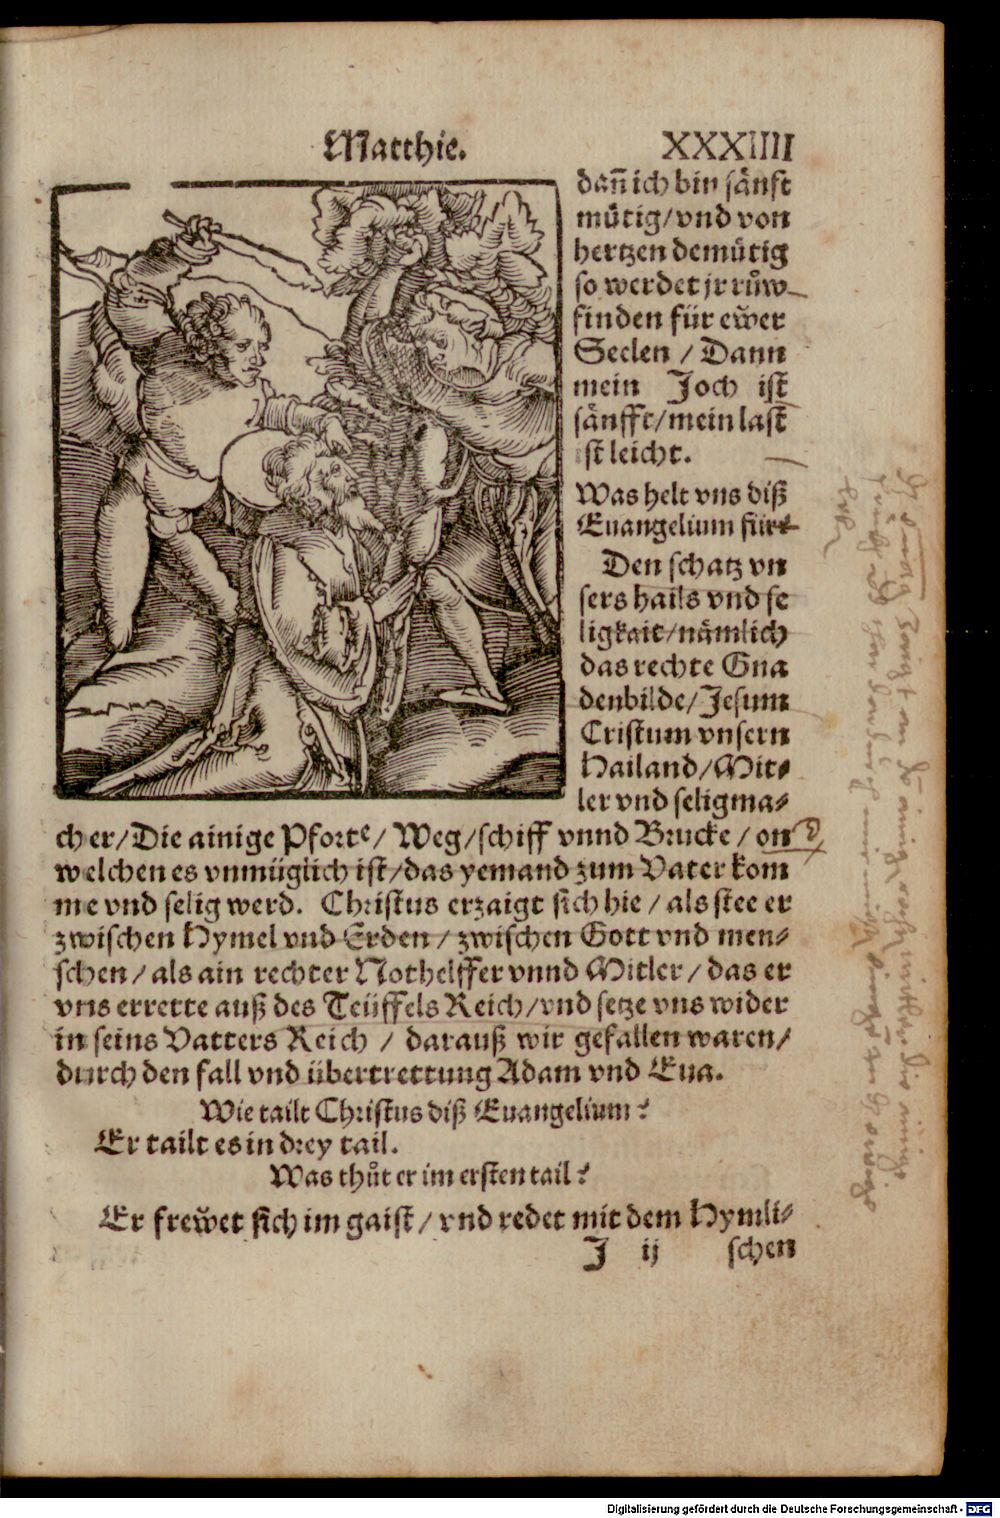 Matthie. XXXIIII
dañ ich bin sånft
mütig/vnd von
hertzen demütig
so werdet jr růw
finden für ewer
Seelen / Dann
mein Joch ist
sånfft/mein last
ist leicht.
Was helt vns diß
Euangelium für
Den schatz vn
sers hails vnd se
ligkait/nämlich
das rechte Gna
denbilde/Jesum
Cristum vnsern
Hailand/Mit⸗
ler vnd seligma⸗
cher/Die ainige Pforte/ Weg/schiff vnnd Brucke / on
welchen es vnmüglich ist/das yemand zum Vater kom
me vnd selig werd. Christus erzaigt sich hie / als stee er
zwischen Hymel vnd Erden / zwischen Gott vnd men⸗
schen / als ain rechter Nothelffer vnnd Mitler / das er
vns errette auß des Teüffels Reich/vnd setze vns wider
in seins Vatters Reich / darauß wir gefallen waren/
durch den fall vnd übertrettung Adam vnd Eua.
Wie tailt Christus diß Euangelium?
Er tailt es in drey tail.
Was thůt er im ersten tail?
Er frewet sich im gaist / vnd redet mit dem Hymli⸗
J ij schen
Digitalisierung gefördert durch die Deutsche Forschungsgemeinschaft - DFG